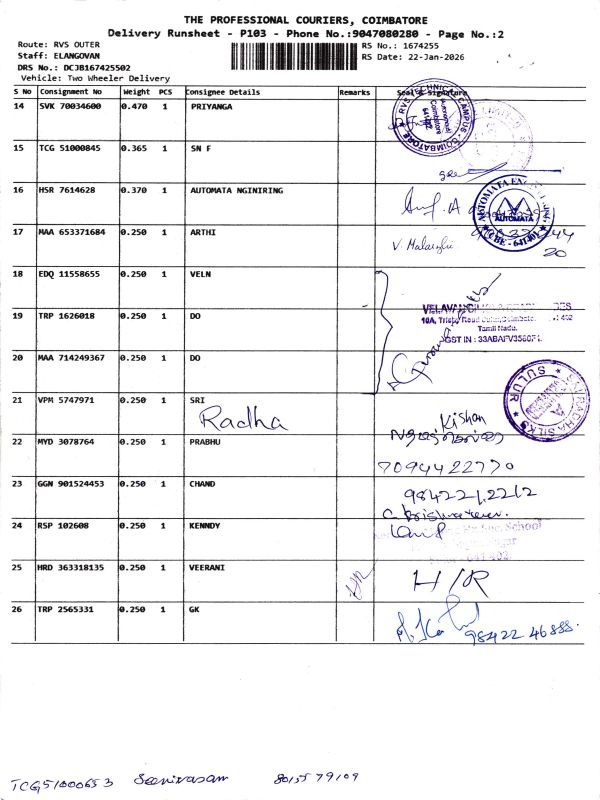 THE PROFESSIONAL COURIERS, COIMBATORE
Delivery Runsheet - P103 - Phone No.:9047080280 - Page No.:2
Route: RVS OUTER
Staff: ELANGOVAN
DRS No.: DCJB167425502
Vehicle: Two Wheeler Delivery
RS No.: 1674255
RS Date: 22-Jan-2026
S No Consignment No Weight PCS Consignee Details Remarks Seal & Signature
14 SVK 70034600 0.470 1 PRIYANGA
15 TCG 51000845 0.365 1 SN F
16 HSR 7614628 0.370 1 AUTOMATA NGINIRING
AUTOMATA
17 MAA 653371684 0.250 1 ARTHI
20
18 EDQ 11558655 0.250 1 VELN
19 TRP 1626018 0.250 1 DO
Tamil Nadu.
20 MAA 714249367 0.250 1 DO
21 VPM 5747971 0.250 1 SRI
Radha
SULUR
Kishan
22 MYD 3078764 0.250 1 PRABHU
7094422770
23 GGN 901524453 0.250 1 CHAND
24 RSP 102608 0.250 1 KENNDY
School
25 HRD 363318135 0.250 1 VEERANI
H/R
26 TRP 2565331 0.250 1 GK
98422 46888.
TCG51000653 Seenivasam 8015579109